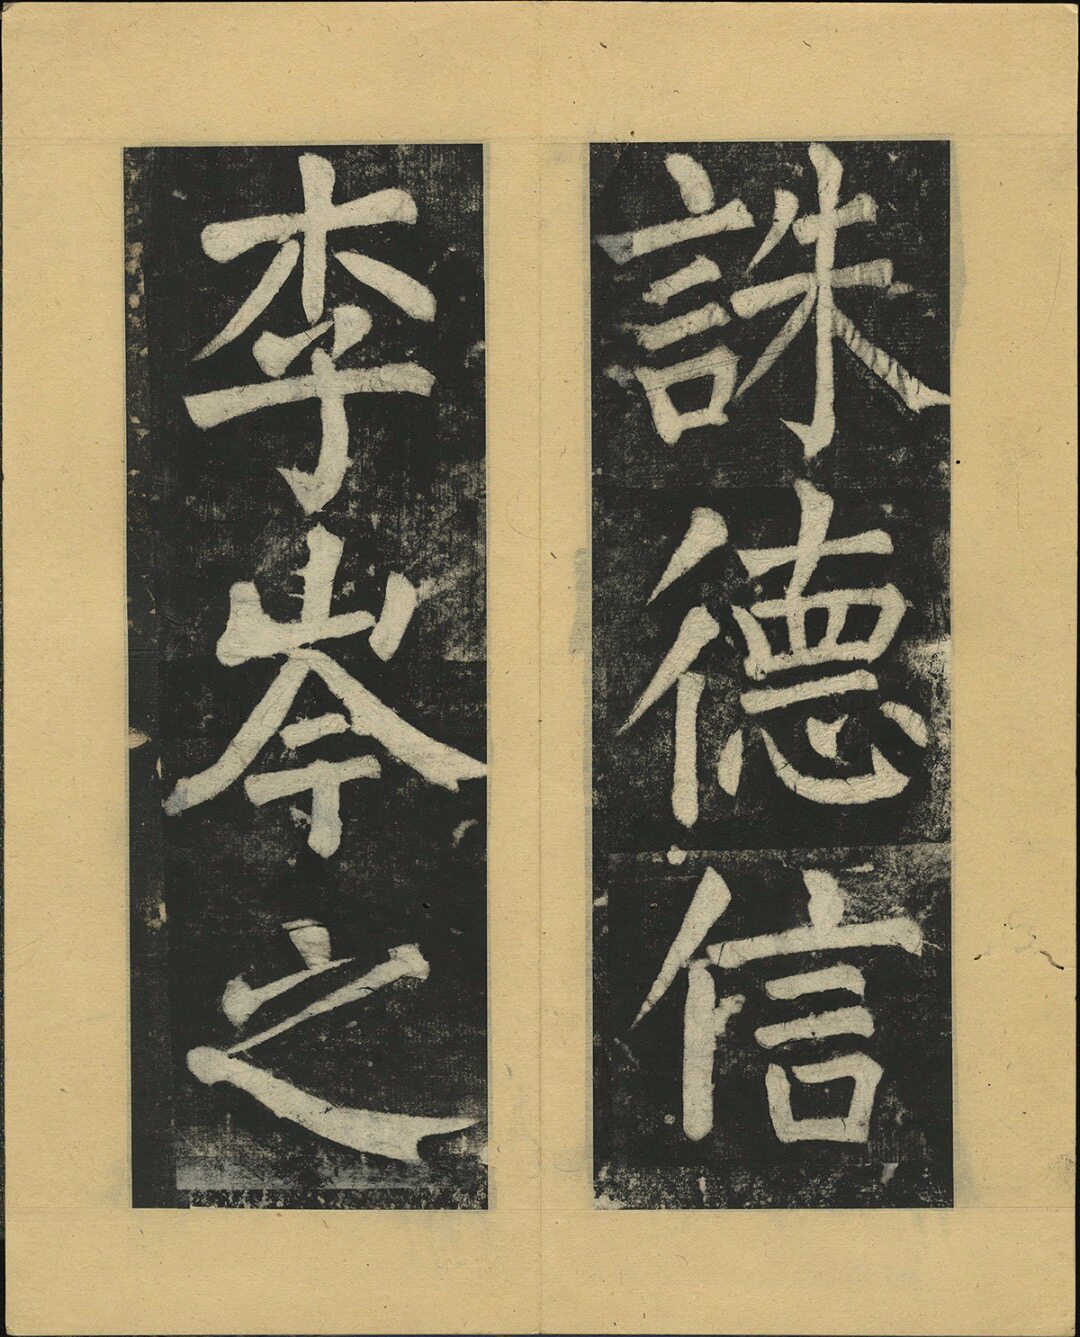 誅德信
李岑之